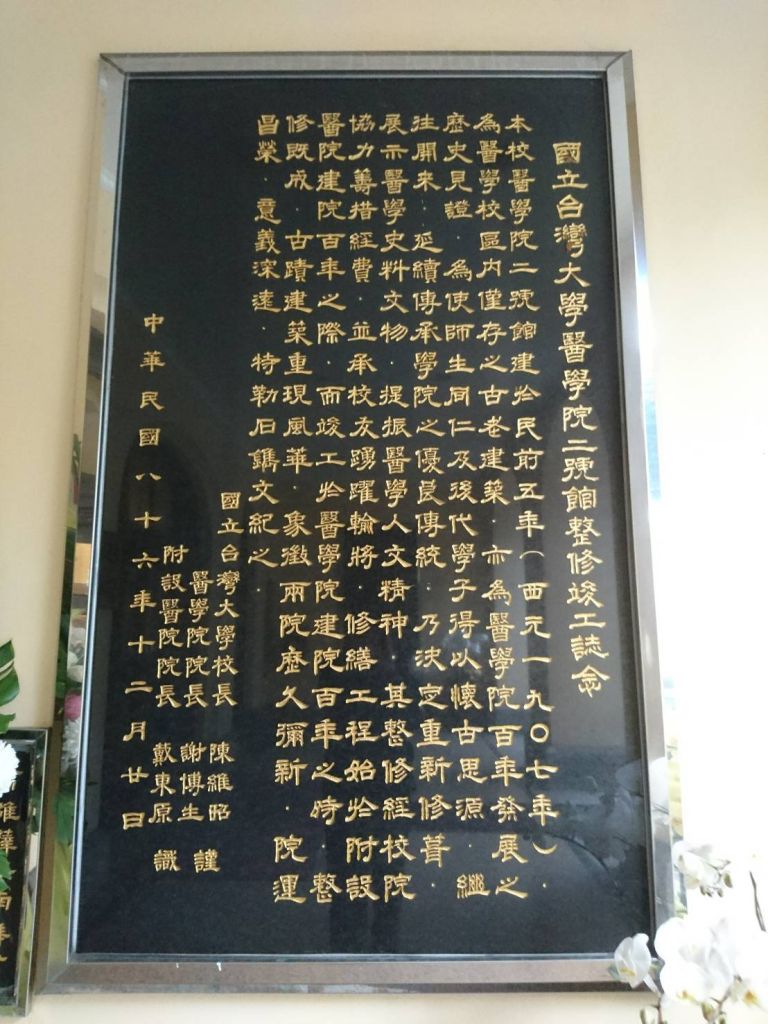 國立台灣大學醫學院二號館整修竣工誌念
本校醫學院二號館建於民前五年(西元一九〇七年).
為醫學校區内僅存之古老建築.亦為醫學院百年發展之
歷史見證.為使師生同仁及後代學子得以懷古思源.繼
往開来.延續傳承學院之優良傳統.乃決定重新修葺.
展示醫學史料文物.提振醫學人文精神.其整修經校院
協力籌措經費.並承校友踴躍輸將.修繕工程始於附設
醫院建院百年之際.而竣工於醫學院建院百年之時.整
修既成.古蹟建築重現風華.象徵兩院歷久彌新.院運
昌榮.意義深遠.特勒石鐫文紀之.
國立台灣大學校長 陳維昭 謹
醫學院院長 謝博生
附設醫院院長 戴東原 識
中華民國八十六年十二月廿日